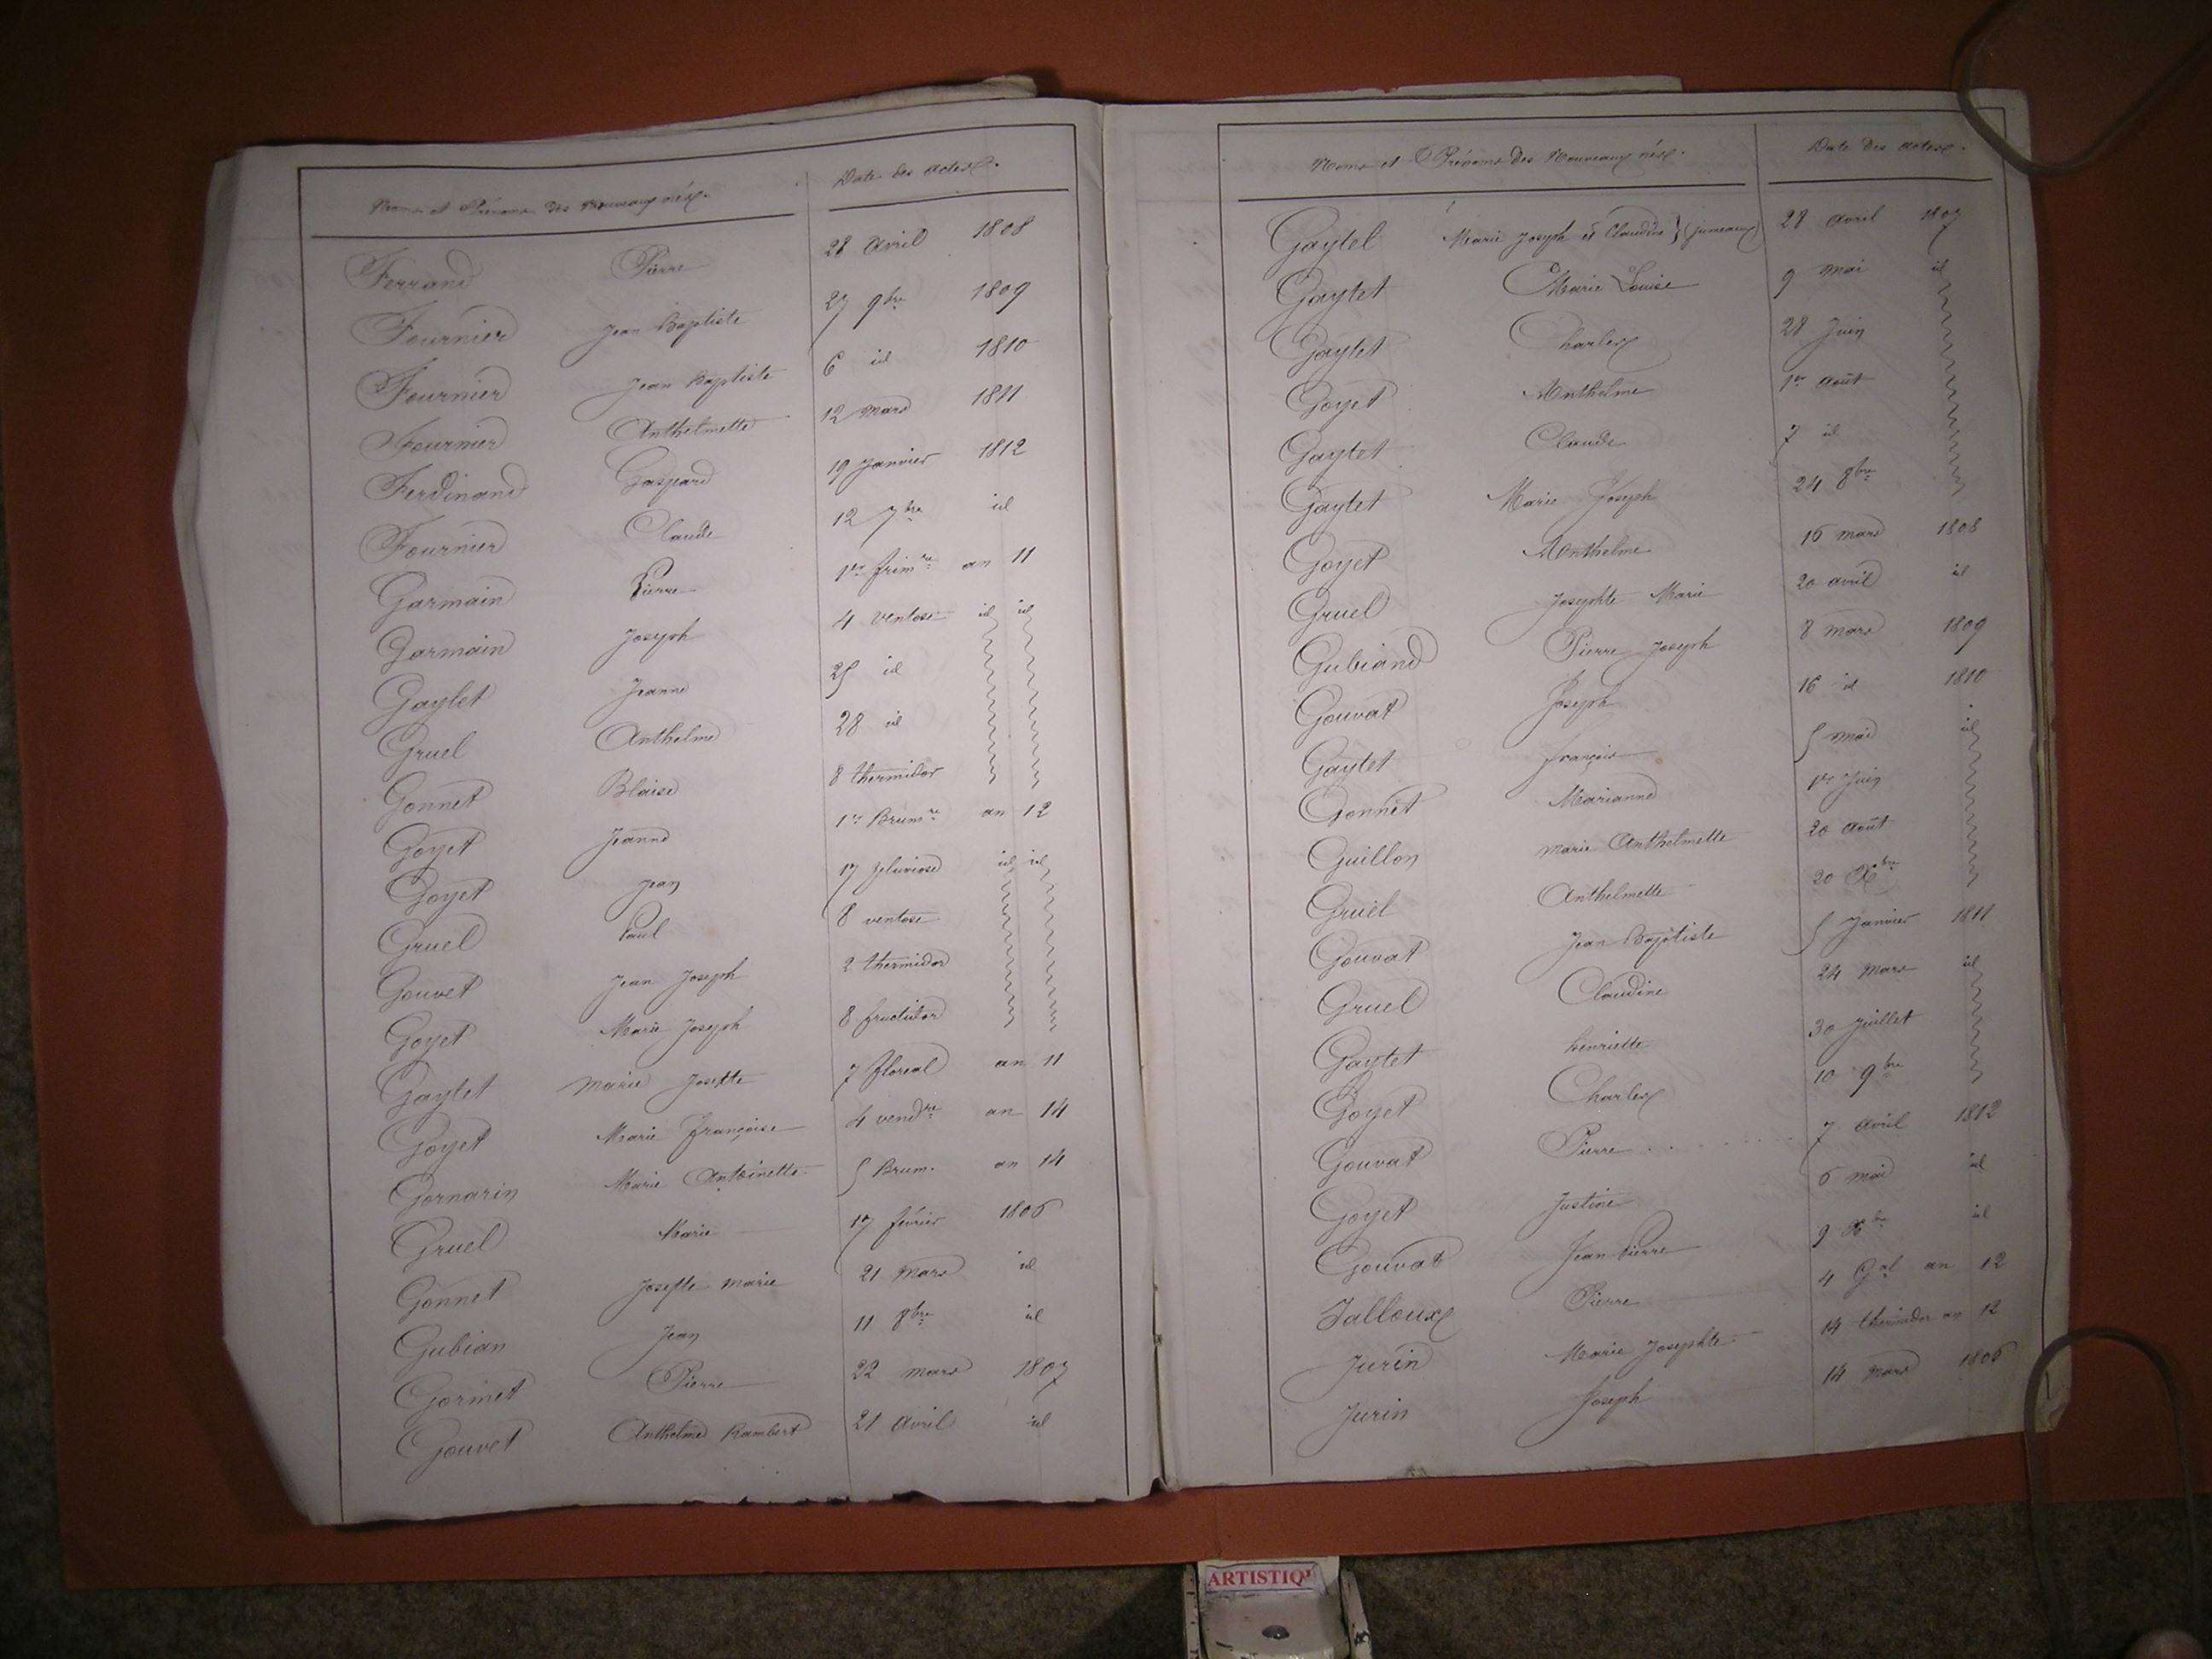 Noms et Prénoms des Nouveaux nés. Date des actes.
Ferrand Pierre 28 avril 1808
Fournier Jean Baptiste 27 9bre 1809
Fournier Jean Baptiste 6 id 1810
Fournier Anthelmette 12 Mars 1811
Ferdinand Gaspard 19 Janvier 1812
Fournier Claude 12 7bre id
Garmain Pierre 1er frimre an 11
Garmain Joseph 4 ventose id id
Gaytet Jeanne 25 id
Gruel Anthelme 28 id
Gonnet Blaise 8 thermidor
Goyet Jeanne 1er Brumre an 12
Goyet Jean 17 pluviose id id
Gruel Paul 8 ventose
Gouvet Jean Joseph 2 thermidor
Goyet Marie Joseph 8 fructidor
Gaytet marie Josette 7 floreal an 11
Goyet Marie françoise 4 vendre an 14
Gornarin Marie Antoinette 5 Brum. an 14
Gruel Marie 17 février 1806
Gonnet Josephte marie 21 Mars id
Gubian Jean 11 8bre id
Gorinet Pierre 22 mars 1807
Gouvet Anthelme Rambert 21 avril id
Noms et Prénoms des Nouveaux nés. Date des actes.
Gaytet Marie Joseph et Claudine } (jumeaux) 28 avril 1807
Gaytet Marie Louise 9 mai id
Gaytet Charles 28 Juin
Goyet Anthelme 1er août
Gaytet Claude 7 id
Gaytet Marie Joseph 24 8bre
Goyet Anthelme 16 mars 1808
Gruel Josephte Marie 20 avril id
Gubiand Pierre Joseph 8 mars 1809
Gouvat Joseph 16 id 1810
Gaytet françois 5 mai id
Gonnet Marianne 1er Juin
Guillon marie Anthelmette 20 août
Gruel Anthelmette 20 Xbre
Gouvat Jean Baptiste 5 Janvier 1811
Gruel Claudine 24 Mars id
Gaytet henriette 30 Juillet
Goyet Charles 10 9bre
Gouvat Pierre 7 avril 1812
Goyet Justine 6 mai id
Gouvat Jean Pierre 9 Xbre id
Jalloux Pierre 4 Gal an 12
Jurin Marie Josephte 14 thermidor an 12
Jurin Joseph 14 Mars 1806
ARTISTIQ